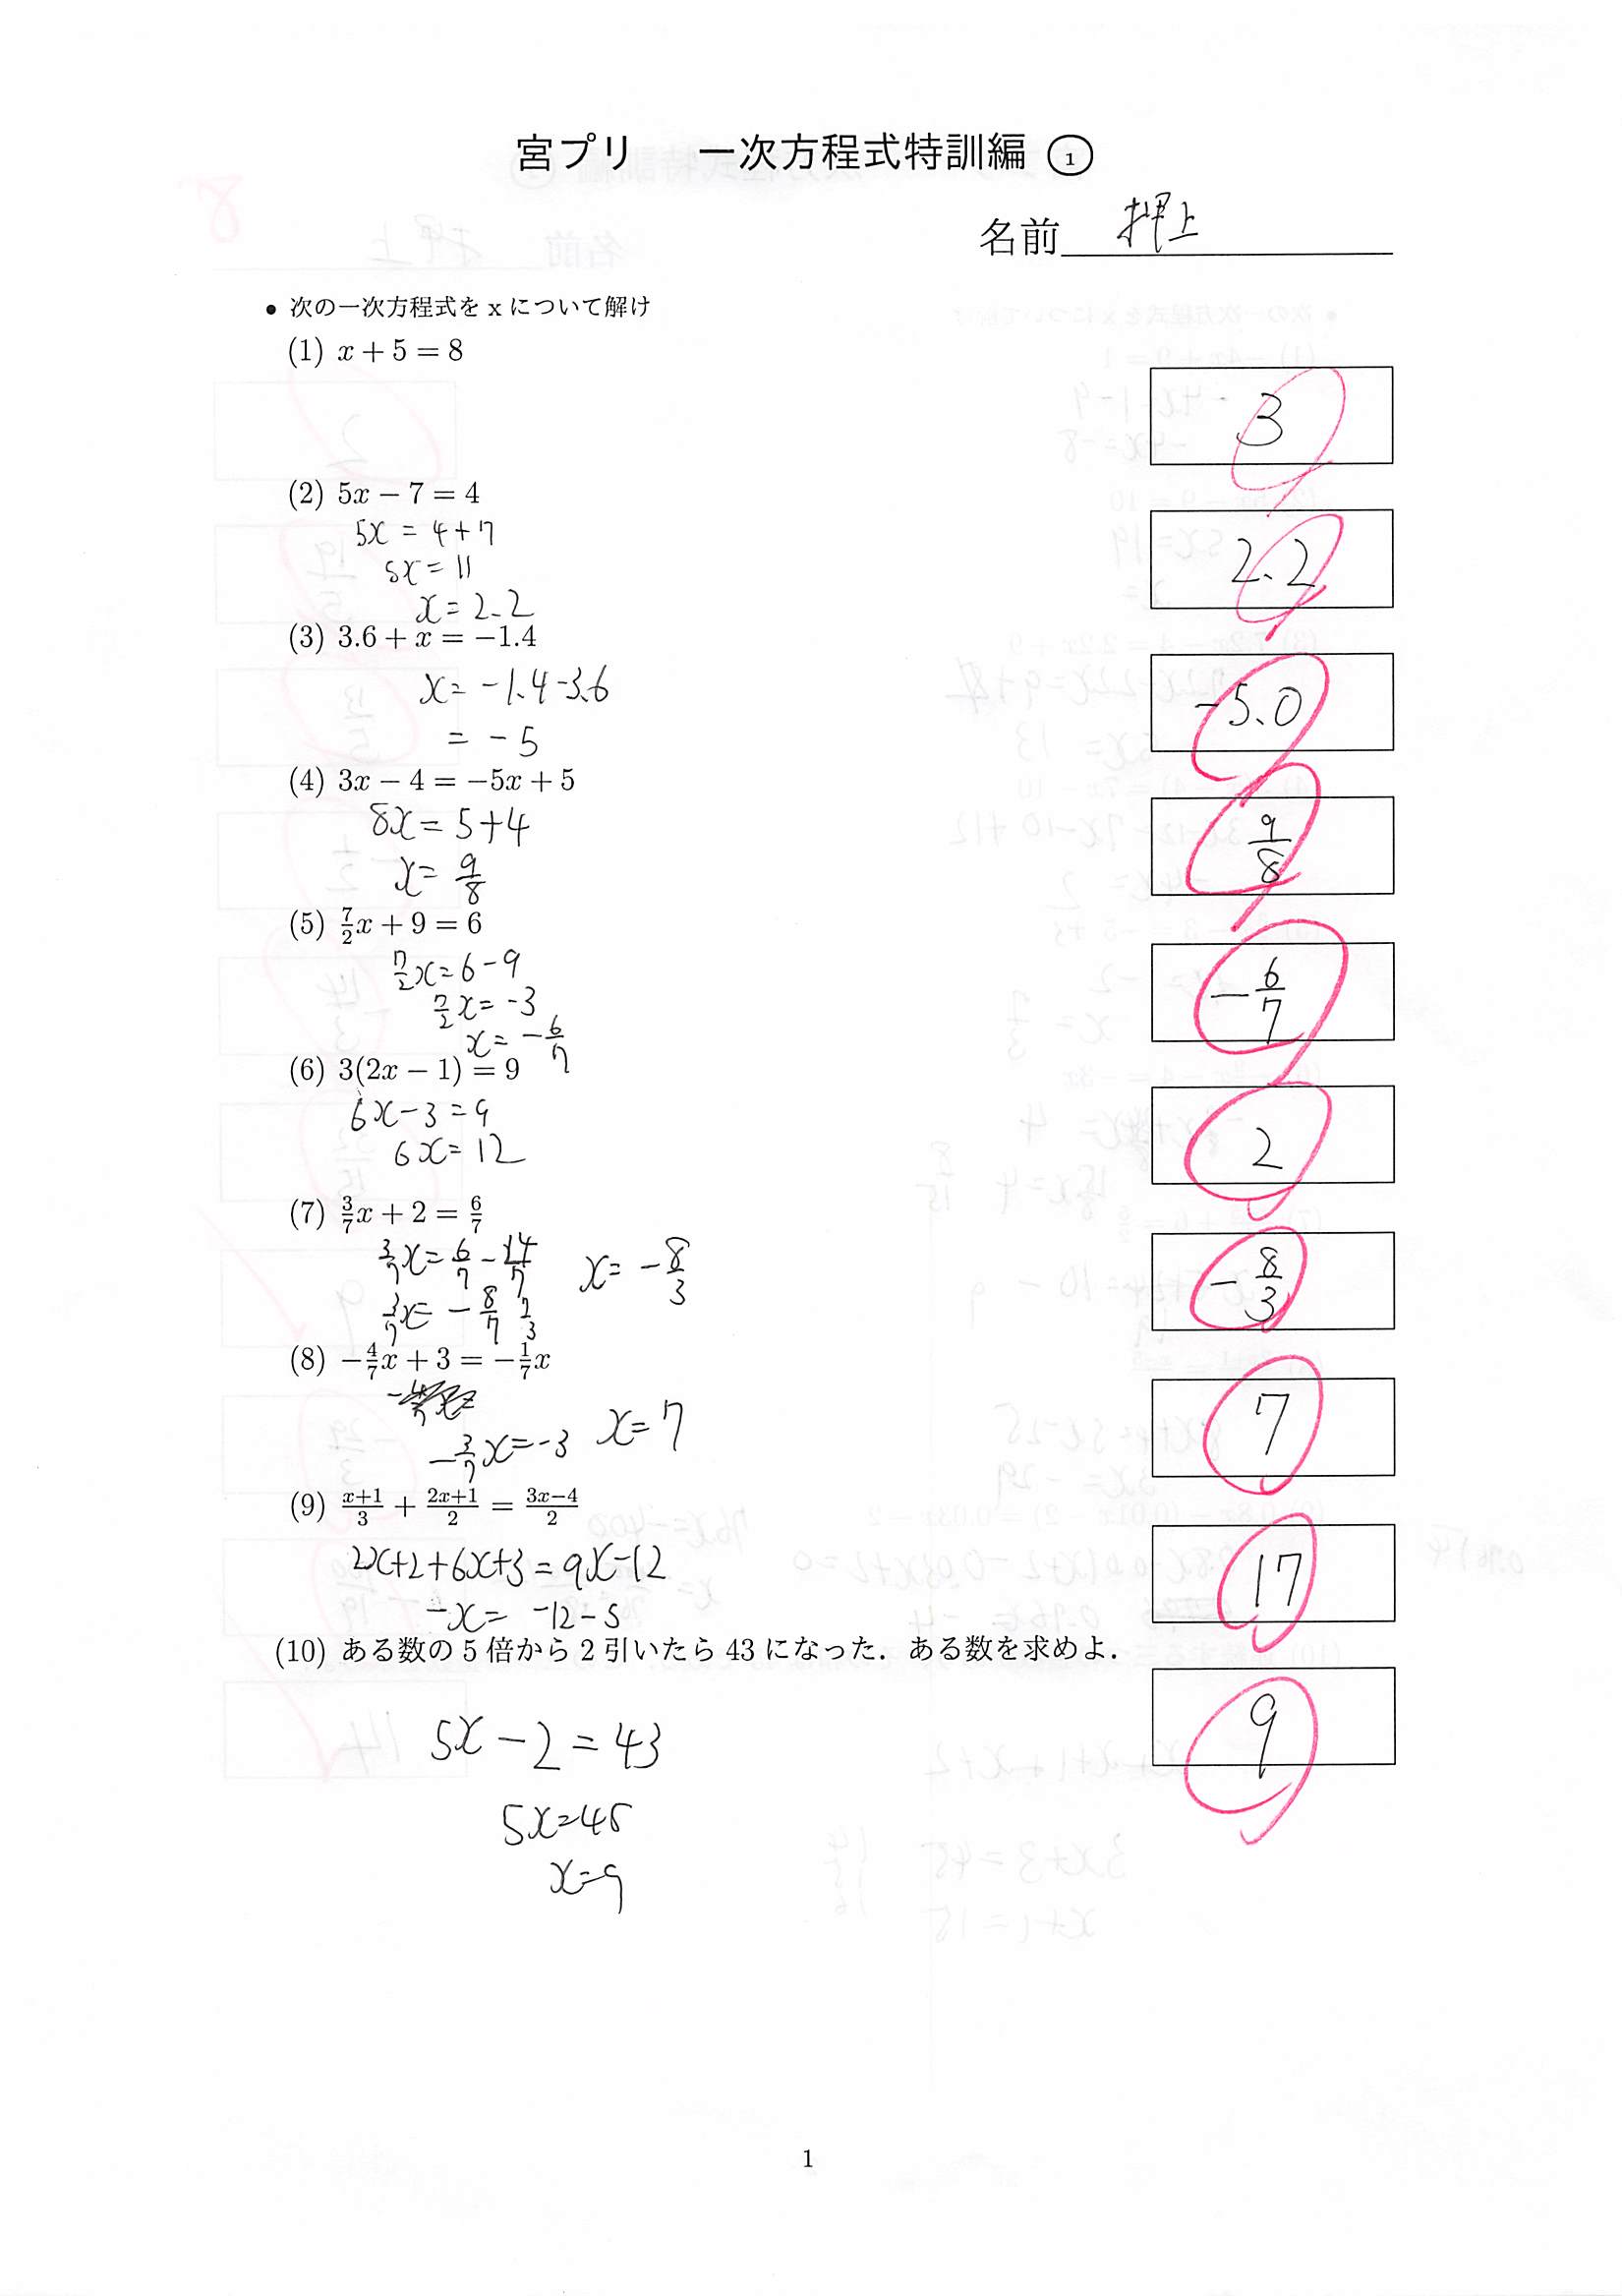 宮プリ 一次方程式特訓編 ①
名前 押上
• 次の一次方程式を x について解け
(1) x + 5 = 8
3
(2) 5x − 7 = 4
5x = 4+7
5x = 11
x = 2.2
2.2
(3) 3.6 + x = −1.4
x = −1.4−3.6
= −5
−5.0
(4) 3x − 4 = −5x + 5
8x = 5+4
x = 9/8
9/8
(5) 7/2 x + 9 = 6
7/2 x = 6−9
7/2 x = −3
x = −6/7
−6/7
(6) 3(2x − 1) = 9
6x−3 = 9
6x = 12
2
(7) 3/7 x + 2 = 6/7
3/7 x = 6/7 − 14/7 x = −8/3
3/7 x = −8/7 2/3
−8/3
(8) −4/7 x + 3 = −1/7 x
−3/7 x = −3 x = 7
7
(9) x+1/3 + 2x+1/2 = 3x−4/2
2x+2+6x+3 = 9x−12
−x = −12−5
17
(10) ある数の 5 倍から 2 引いたら 43 になった．ある数を求めよ．
5x − 2 = 43
5x = 45
x = 9
9
1